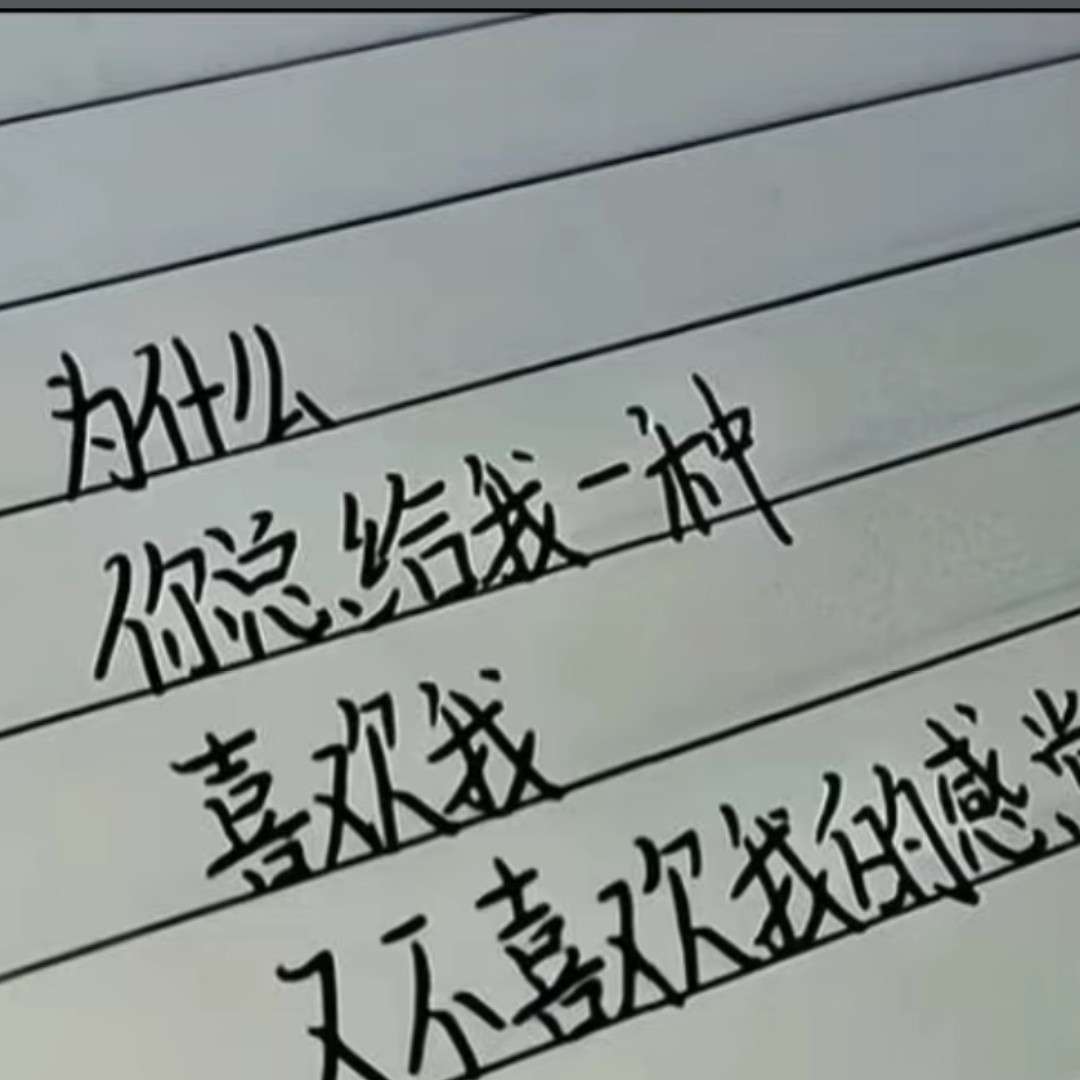 为什么
你总给我一种
喜欢我
又不喜欢我的感觉